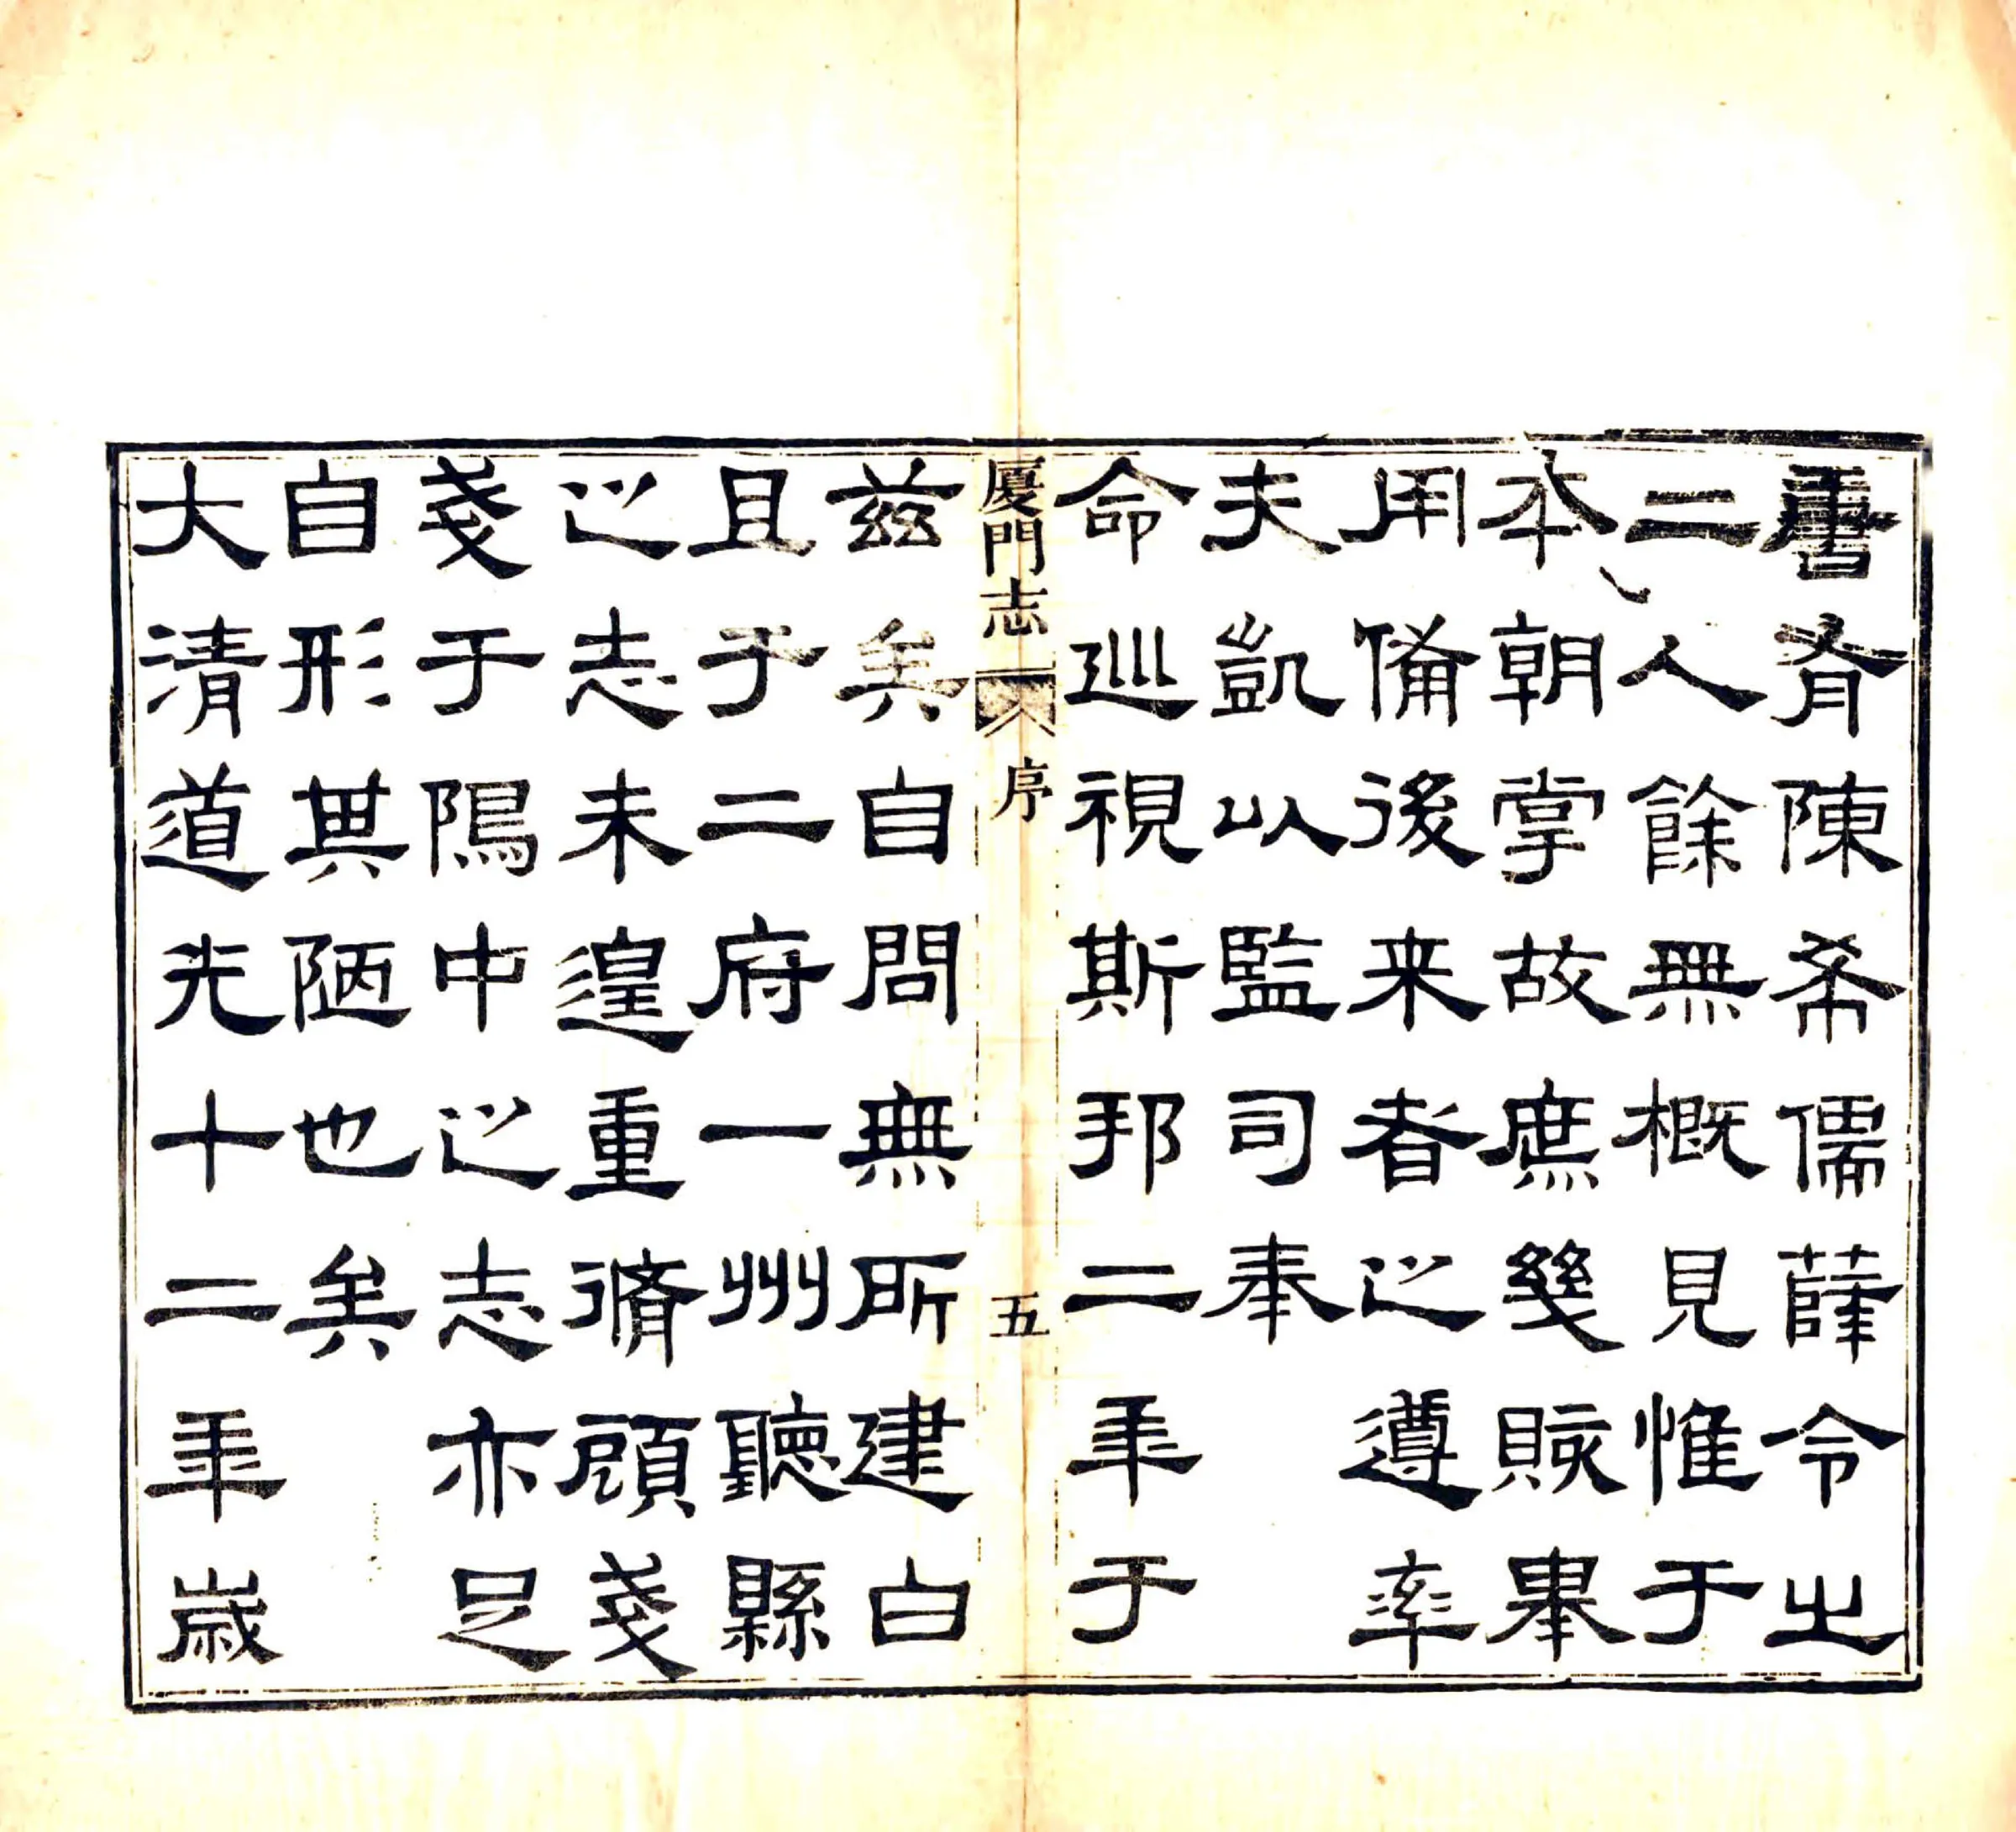 唐有陳希儒薛令之
二人餘無概見惟于
本朝掌故庶幾賅舉
用備後来者之遵率
夫凱以監司奉
命巡視斯邦二年于
厦門志 序 五
茲矣自問無所建白
且于二府一州聽縣
之志未遑重脩顧戔
戔于隝中之志亦足
自形其陋也矣
大清道光十二年歲